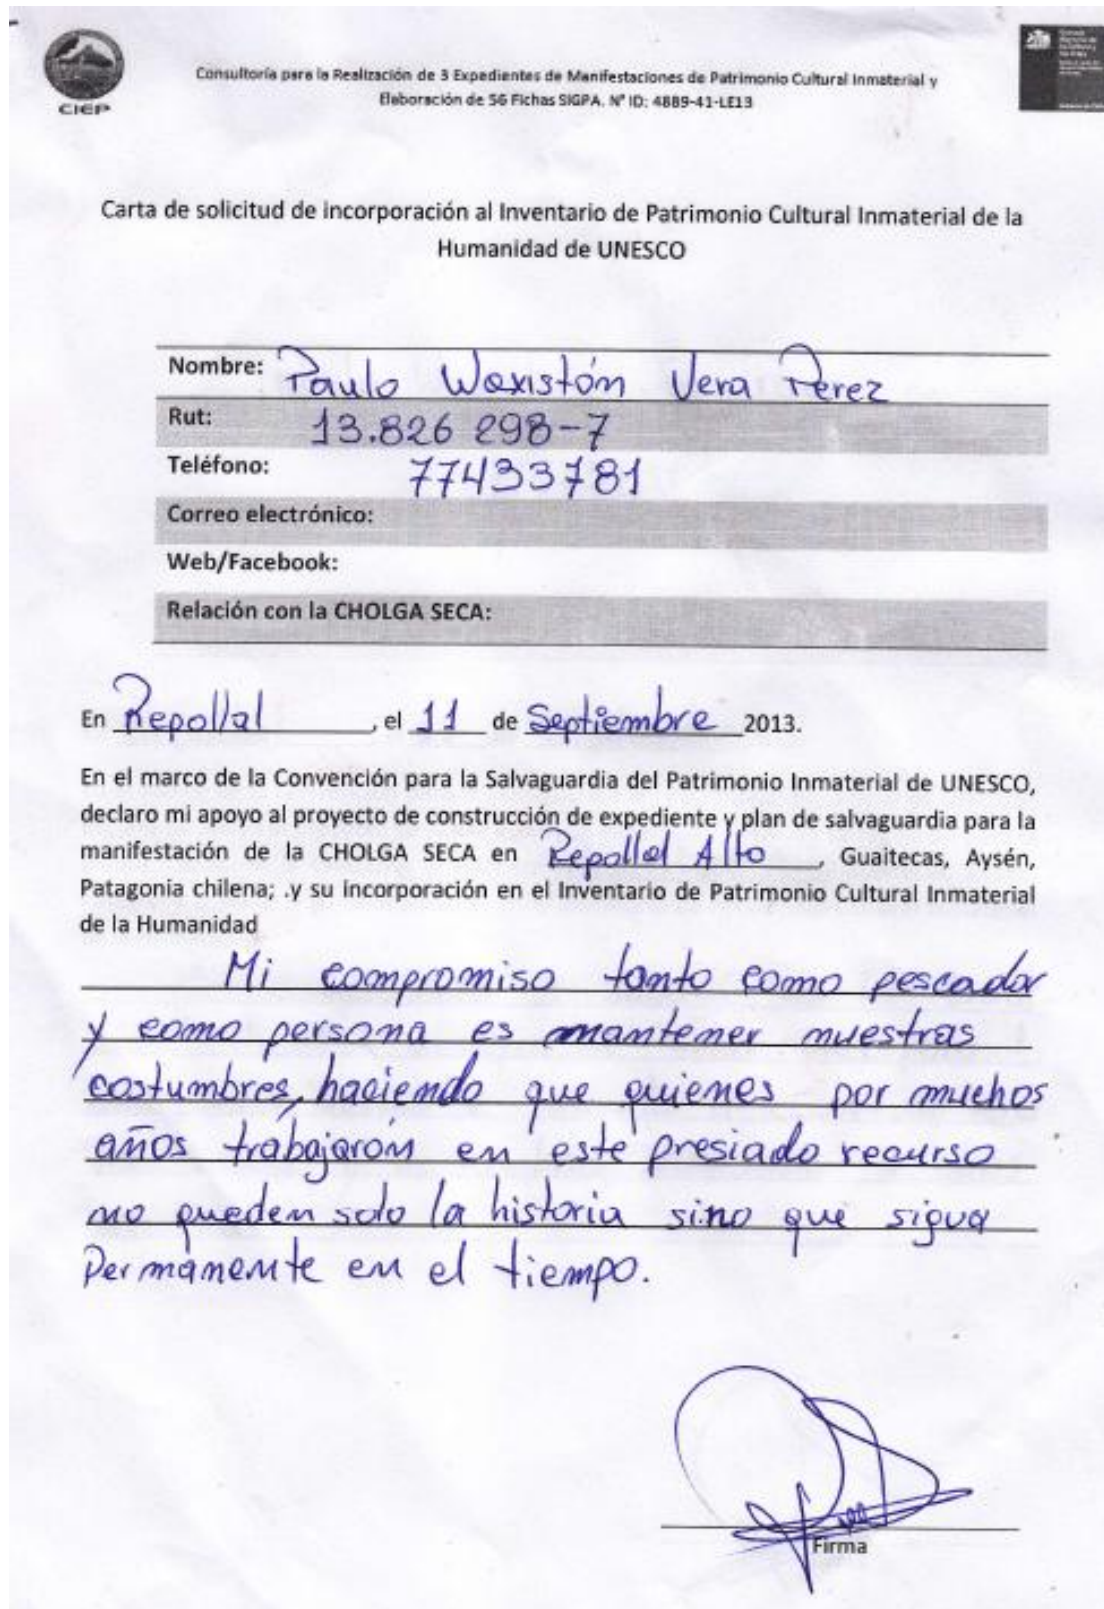 CIEP
Consultoría para la Realización de 3 Expedientes de Manifestaciones de Patrimonio Cultural Inmaterial y
Elaboración de 56 Fichas SIGPA. N° ID: 4889-41-LE13
Carta de solicitud de incorporación al Inventario de Patrimonio Cultural Inmaterial de la
Humanidad de UNESCO
Nombre: Paulo Waxistón Vera Perez
Rut: 13.826 298-7
Teléfono: 77433781
Correo electrónico:
Web/Facebook:
Relación con la CHOLGA SECA:
En Repollal, el 11 de Septiembre 2013.
En el marco de la Convención para la Salvaguardia del Patrimonio Inmaterial de UNESCO,
declaro mi apoyo al proyecto de construcción de expediente y plan de salvaguardia para la
manifestación de la CHOLGA SECA en Repollal Alto, Guaitecas, Aysén,
Patagonia chilena; .y su incorporación en el Inventario de Patrimonio Cultural Inmaterial
de la Humanidad
Mi compromiso tanto como pescador
y como persona es mantener nuestras
costumbres, haciendo que quienes por muchos
años trabajarón en este presiado recurso
no queden solo la historia sino que sigua
Permanente en el tiempo.
Firma